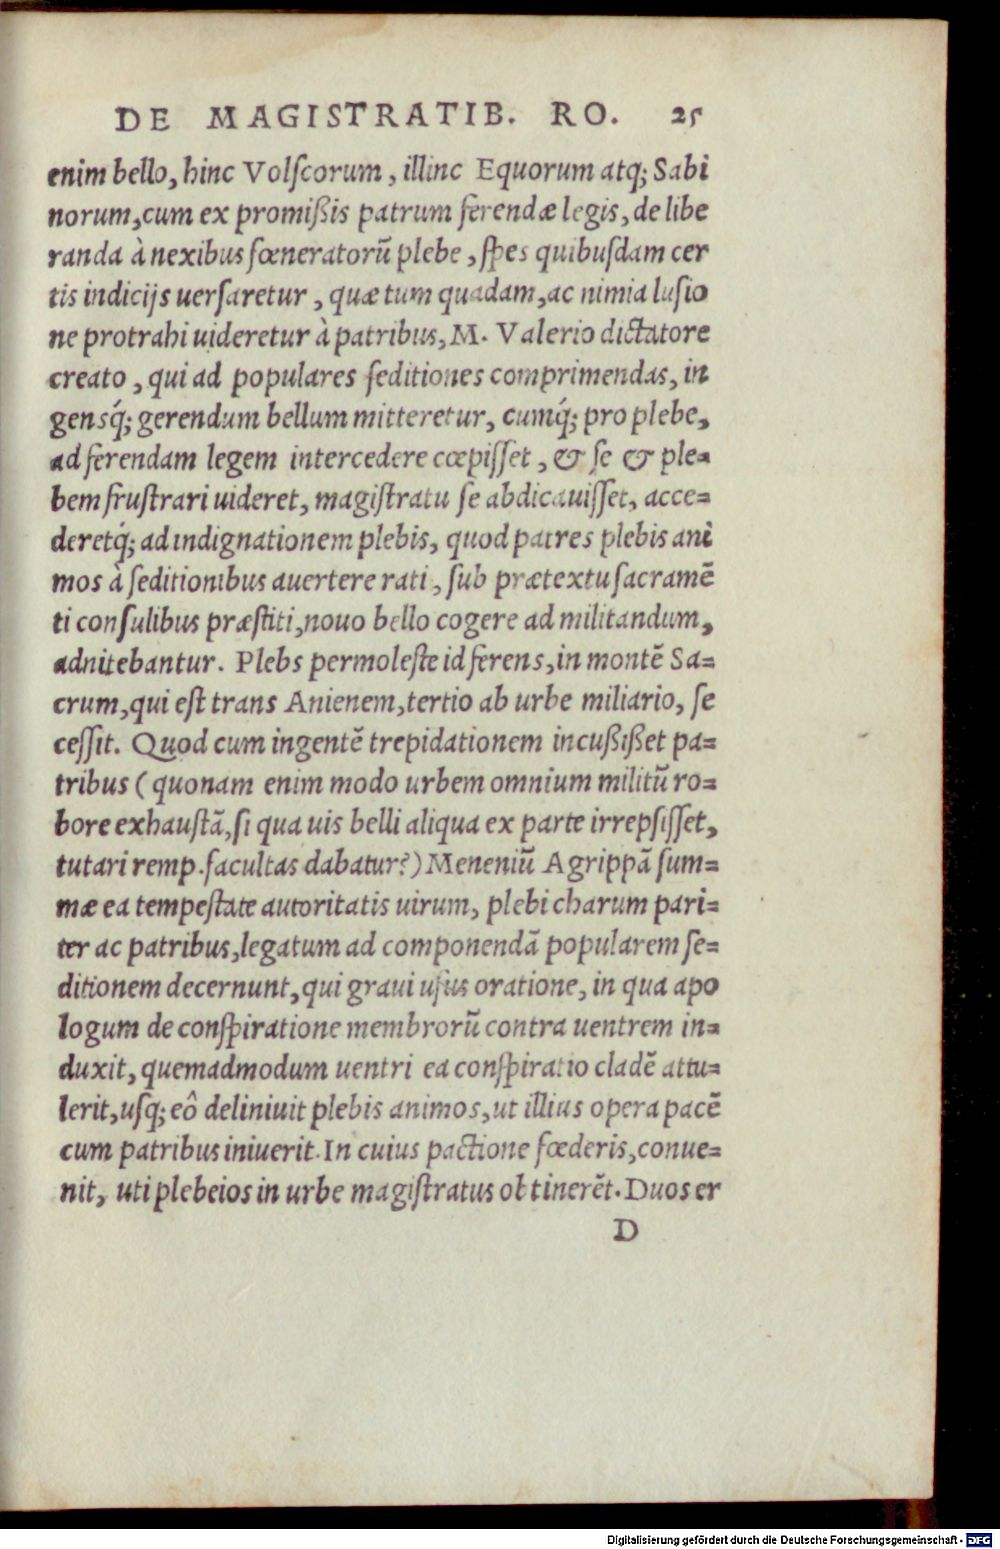 DE MAGISTRATIB. RO. 25
enim bello, hinc Volſcorum, illinc Equorum atq; Sabi
norum,cum ex promißis patrum ferendæ legis, de libe
randa à nexibus fœneratorũ plebe, ſpes quibuſdam cer
tis indicijs uerſaretur, quæ tum quadam,ac nimia luſio
ne protrahi uideretur à patribus, M. Valerio dictatore
creato, qui ad populares ſeditiones comprimendas, in
gensq́; gerendum bellum mitteretur, cumq́; pro plebe,
ad ferendam legem intercedere cœpiſſet, & ſe & ple=
bem fruſtrari uideret, magiſtratu ſe abdicauiſſet, acce=
deretq́; ad indignationem plebis, quod patres plebis ani
mos à ſeditionibus auertere rati, ſub prætextu ſacramẽ
ti conſulibus præſtiti,nouo bello cogere ad militandum,
adnitebantur. Plebs permoleſte id ferens,in montẽ Sa=
crum,qui eſt trans Anienem,tertio ab urbe miliario, ſe
ceſſit. Quod cum ingentẽ trepidationem incußißet pa=
tribus (quonam enim modo urbem omnium militũ ro=
bore exhauſtã,ſi qua uis belli aliqua ex parte irrepſiſſet,
tutari remp.facultas dabatur?) Meneniũ Agrippã ſum=
mæ ea tempeſtate autoritatis uirum, plebi charum pari=
ter ac patribus,legatum ad componendã popularem ſe=
ditionem decernunt,qui graui uſus oratione, in qua apo
logum de conſpiratione membrorũ contra uentrem in=
duxit, quemadmodum uentri ea conſpiratio cladẽ attu=
lerit,uſq; eô deliniuit plebis animos,ut illius opera pacẽ
cum patribus iniuerit. In cuius pactione fœderis,conue=
nit, uti plebeios in urbe magiſtratus obtinerẽt. Duos er
D
Digitalisierung gefördert durch die Deutsche Forschungsgemeinschaft - DFG